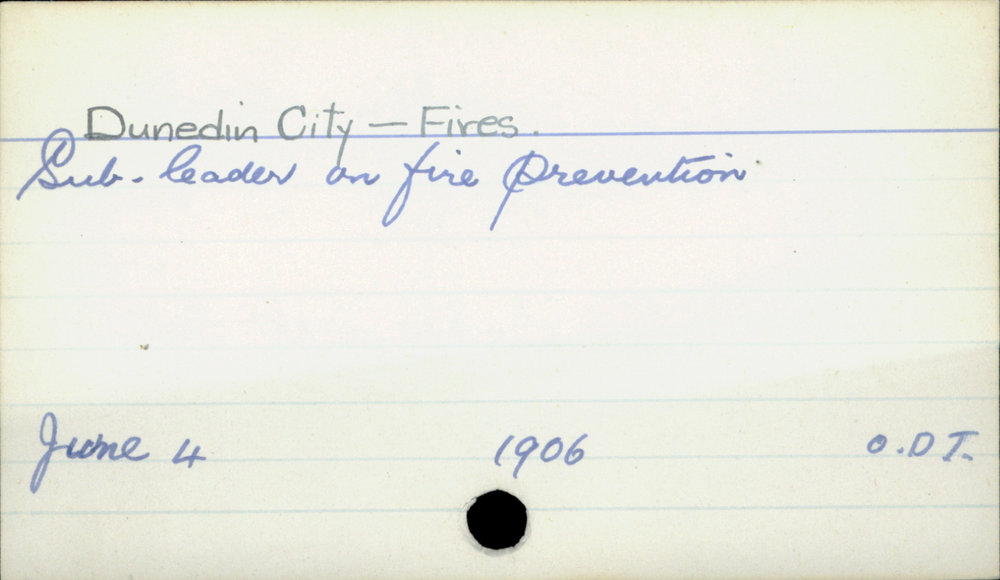 Dunedin City — Fires.
Sub-leader on fire prevention
June 4 1906 O.D T.